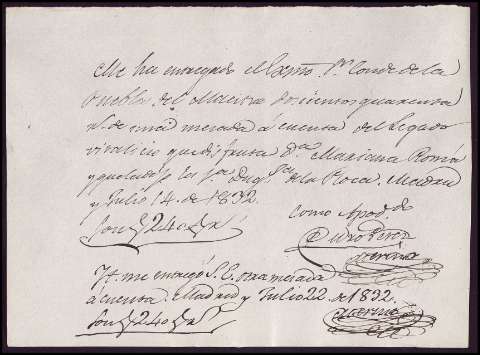 Me ha entregado el Exmo. Sr. Conde de la
Puebla del Maestre doscientos quarenta
rs. de una mesada á cuenta del Legado
vitalicio que disfruta Da. Mariana Romá
y que dejó la Sra. Duqsa. de la Roca. Madrid
y Julio 14. de 1832.
Como Apod.do
Son 240 rs.
Pedro Perez
Merino
It. me entregó S. E. otra mesada
á cuenta. Madrid y Julio 22 de 1832.
Son 240 rs.
Merino